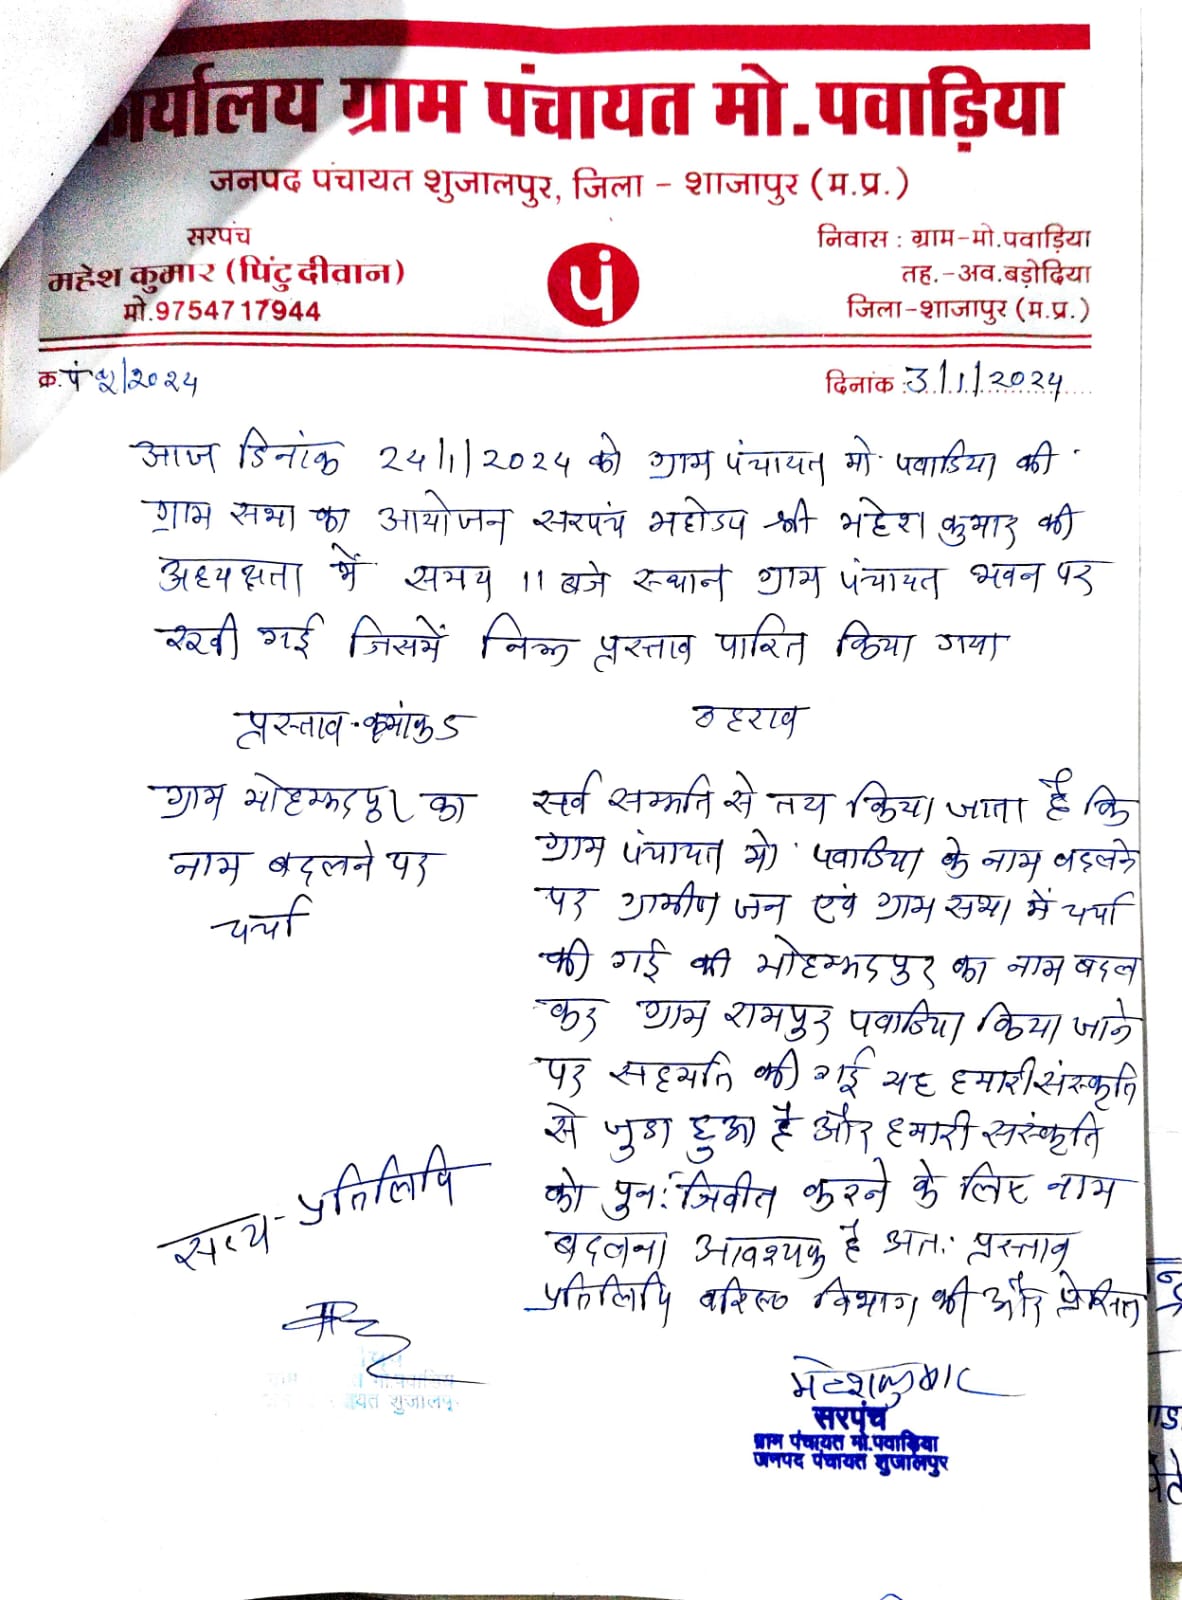 कार्यालय ग्राम पंचायत मो.पवाड़िया
जनपद पंचायत शुजालपुर, जिला - शाजापुर (म.प्र.)
सरपंच
महेश कुमार (पिंटु दीवान)
मो.9754717944
पं
निवास : ग्राम-मो.पवाड़िया
तह.-अव.बड़ोदिया
जिला-शाजापुर (म.प्र.)
क्र. पं /2024
दिनांक : 3/1/2024
आज दिनांक 24/1/2024 को ग्राम पंचायत मो. पवाडिया की
ग्राम सभा का आयोजन सरपंच महोदय श्री महेश कुमार की
अध्यक्षता में समय 11 बजे स्थान ग्राम पंचायत भवन पर
रखी गई जिसमें निम्न प्रस्ताव पारित किया गया
प्रस्ताव-क्रमांक 5
ठहराव
ग्राम मोहम्मदपुर का
नाम बदलने पर
चर्चा
सर्व सम्मति से तय किया जाता है कि
ग्राम पंचायत मो. पवाडिया के नाम बदलने
पर ग्रामीण जन एवं ग्राम सभा में चर्चा
की गई की मोहम्मदपुर का नाम बदल
कर ग्राम रामपुर पवाडिया किया जाने
पर सहमति की गई यह हमारी संस्कृति
से जुडा हुआ है और हमारी सस्ंकृति
को पुन: जिवीत करने के लिए नाम
बदलना आवश्यक है अत: प्रस्ताव
प्रतिलिपि वरिष्ठ विभाग की और प्रेसित
सत्य-प्रतिलिपि
मो.पवाडिया
शुजालपुर
महेश कुमार
सरपंच
ग्राम पंचायत मो.पवाड़िया
जनपद पंचायत शुजालपुर